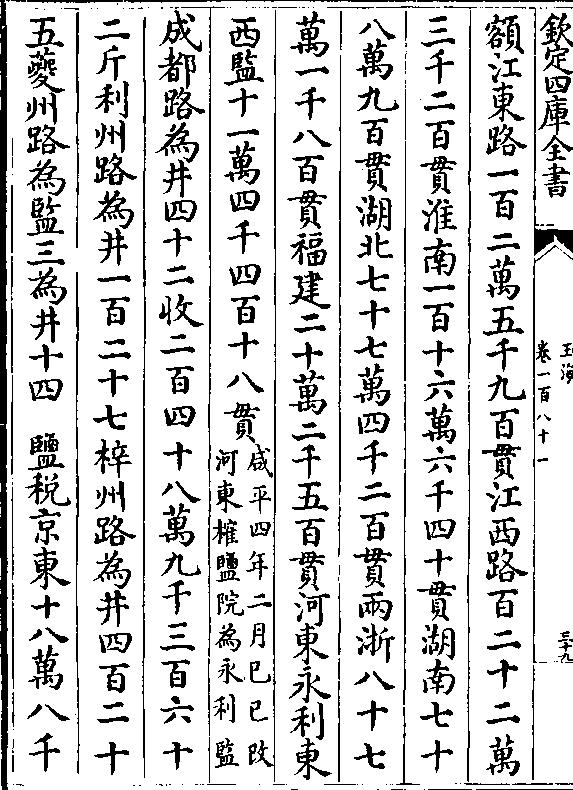 欽定四庫全書
玉海
卷一百八十一
三十九
額江東路一百二萬五千九百貫江西路百二十二萬
三千二百貫淮南一百十六萬六千四十貫湖南七十
八萬九百貫湖北七十七萬四千二百貫兩浙八十七
萬一千八百貫福建二十萬二千五百貫河東永利東
西監十一萬四千四百十八貫咸平四年二月已已改
河東榷鹽院為永利監
成都路為井四十二收二百四十八萬九千三百六十
二斤利州路為井一百二十七梓州路為井四百二十
五夔州路為監三為井十四　鹽税京東十八萬八千